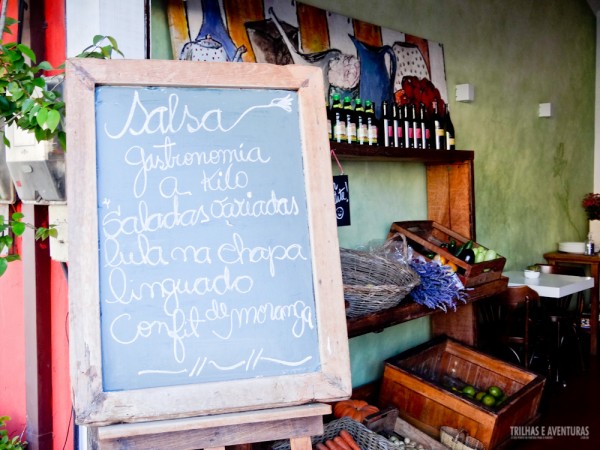 Salsa
gastronomia
a kilo
*Saladas variadas
lula na chapa
linguado
confit de moranga
TRILHAS E AVENTURAS